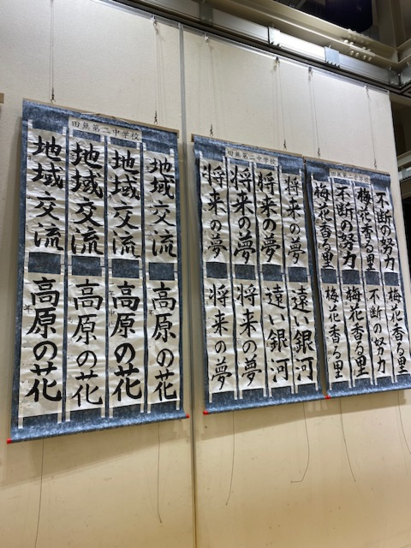 田無第二中学校
不断の努力
梅花香る里
不断の努力
梅花香る里
梅花香る里
不断の努力
梅花香る里
梅花香る里
田無第二中学校
将来の夢
将来の夢
将来の夢
将来の夢
遠い銀河
遠い銀河
将来の夢
将来の夢
田無第二中学校
地域交流
地域交流
地域交流
地域交流
高原の花
高原の花
高原の花
高原の花